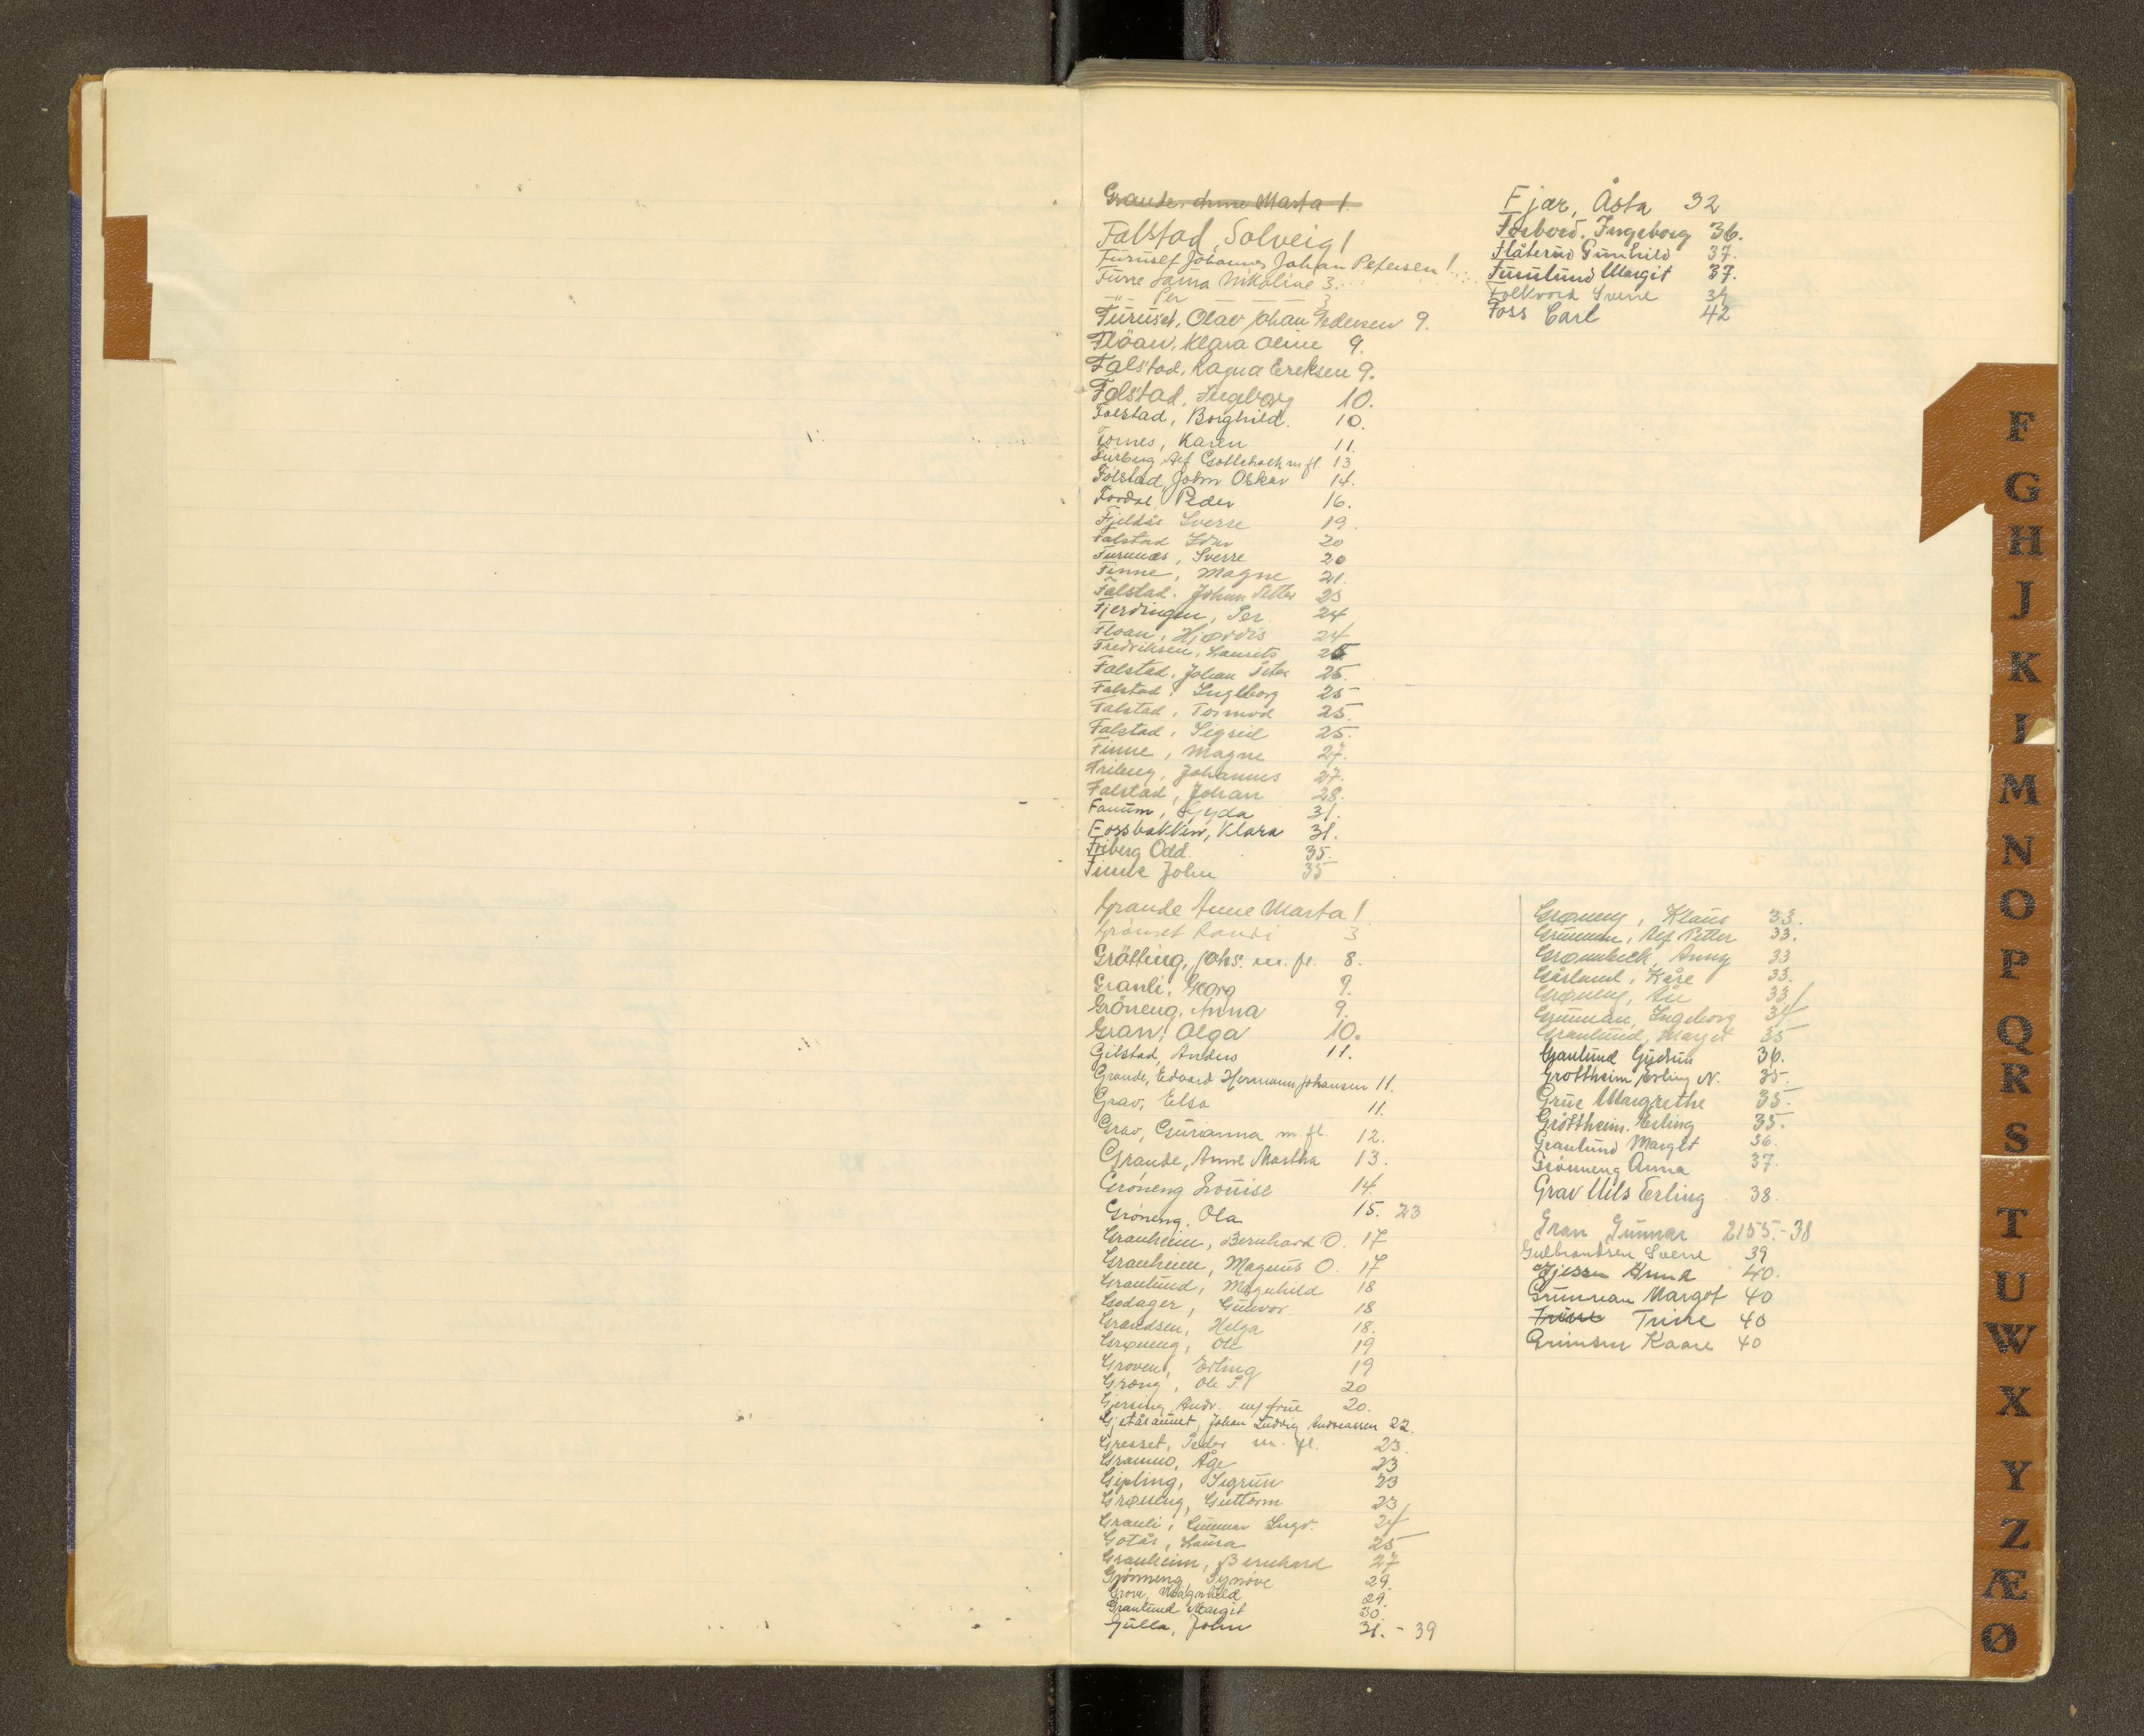 Grande Anne Marta 1.
Falstad, Solveig 1
Furuset Johannes Johan Petersen 1.
Furre Laura Nikoline 3.
-"- Per — — — 3
Furuset, Olav Johan Pedersen 9.
Flöan, Klara Oline 9.
Falstad, Ragna Ereksen 9.
Falstad, Ingeborg 10.
Falstad, Borghild. 10.
Fornes, Karen 11.
Furberg, Alf m.fl. 13
Følstad, John Oskar 14.
Fordal, Peder 16.
Fjeldås Sverre 19.
Falstad 20
Furunes, Sverre 20
Finne, Magne 21.
Falstad. Johan Petter 23
Fjerdingen, Per 24
Floan, Hjørdis 24
Fredriksen, Laurits 25
Falstad, Johan Peter 25.
Falstad, Ingeborg 25
Falstad, Tormod 25.
Falstad, Sigrid 25.
Finne, Magne 27.
Friberg, Johannes 27.
Falstad, Johan 28.
Fanum, Gyda 31.
Fossbakken, Klara 31.
Friberg Odd. 35.
Finne John 35
Fjær, Åsta 32
Ingeborg 36.
Flåterud Gunhild 37.
Furulund Margit 37.
Folkvord Sverre 39
Foss Carl 42
Grande Anne Marta 1
Grönset Randi 3
Grötting, Johs. m. fl. 8.
Granli, Georg 9.
Gröneng, Anna 9.
Gran, Olga 10.
Gilstad, Anders 11.
Grande, Edvard Hermann Johansen 11.
Grav, Elsa 11.
Grav, Gurianna m. fl. 12.
Grande, Anne Martha 13.
Gröneng Louise 14.
Gröneng, Ola 15. 23
Granheim, Bernhard O. 17
Granheim, Magnus O. 17
Granlund, Magnhild 18
Gsodager, Gunvor 18
Grandsen, Helga 18.
Grøneng, Ole 19
Groven, Erling 19
Grøng, Ole P. 20
Gjersing Andr. m/ frue 20.
Johan Ludvig Andreassen 22.
Gresset, Peder m. fl. 23.
Gramno, Åge 23
Gipling, Sigrun 23
Grøneng, Guttorm 23
Granli, Gunnar Ingv. 24
Gotås, Laura 25
Granheim, Bernhard 27
Grönneng, Synöve 29.
Grove, Magnhild 29.
Granlund Margit 30.
Gulla, John 31. - 39
Grøneng, Klaus 33.
Grunnan, Alf Petter 33.
Grønnbeck, Anny 33
Gårland, Kåre 33.
Grøneng, 33
Grunnan, Ingeborg 34
Granlund, Margit 35
Granlund Gudrun 36.
Grottheim Erling N. 35.
Grue Margrethe 35.
Gröttheim. Erling 35.
Granlund Margit 36.
Grönneng Anna 37.
Grav Nils Erling. 38.
Gran Gunnar 2155.-38
Gulbrandsen Sverre 39
Gjessen Anna 40.
Grunnan Margot 40
Trine 40
Kaare 40
F
G
H
J
K
M
N
O
P
Q
R
S
T
U
W
X
Y
Z
Æ
Ø